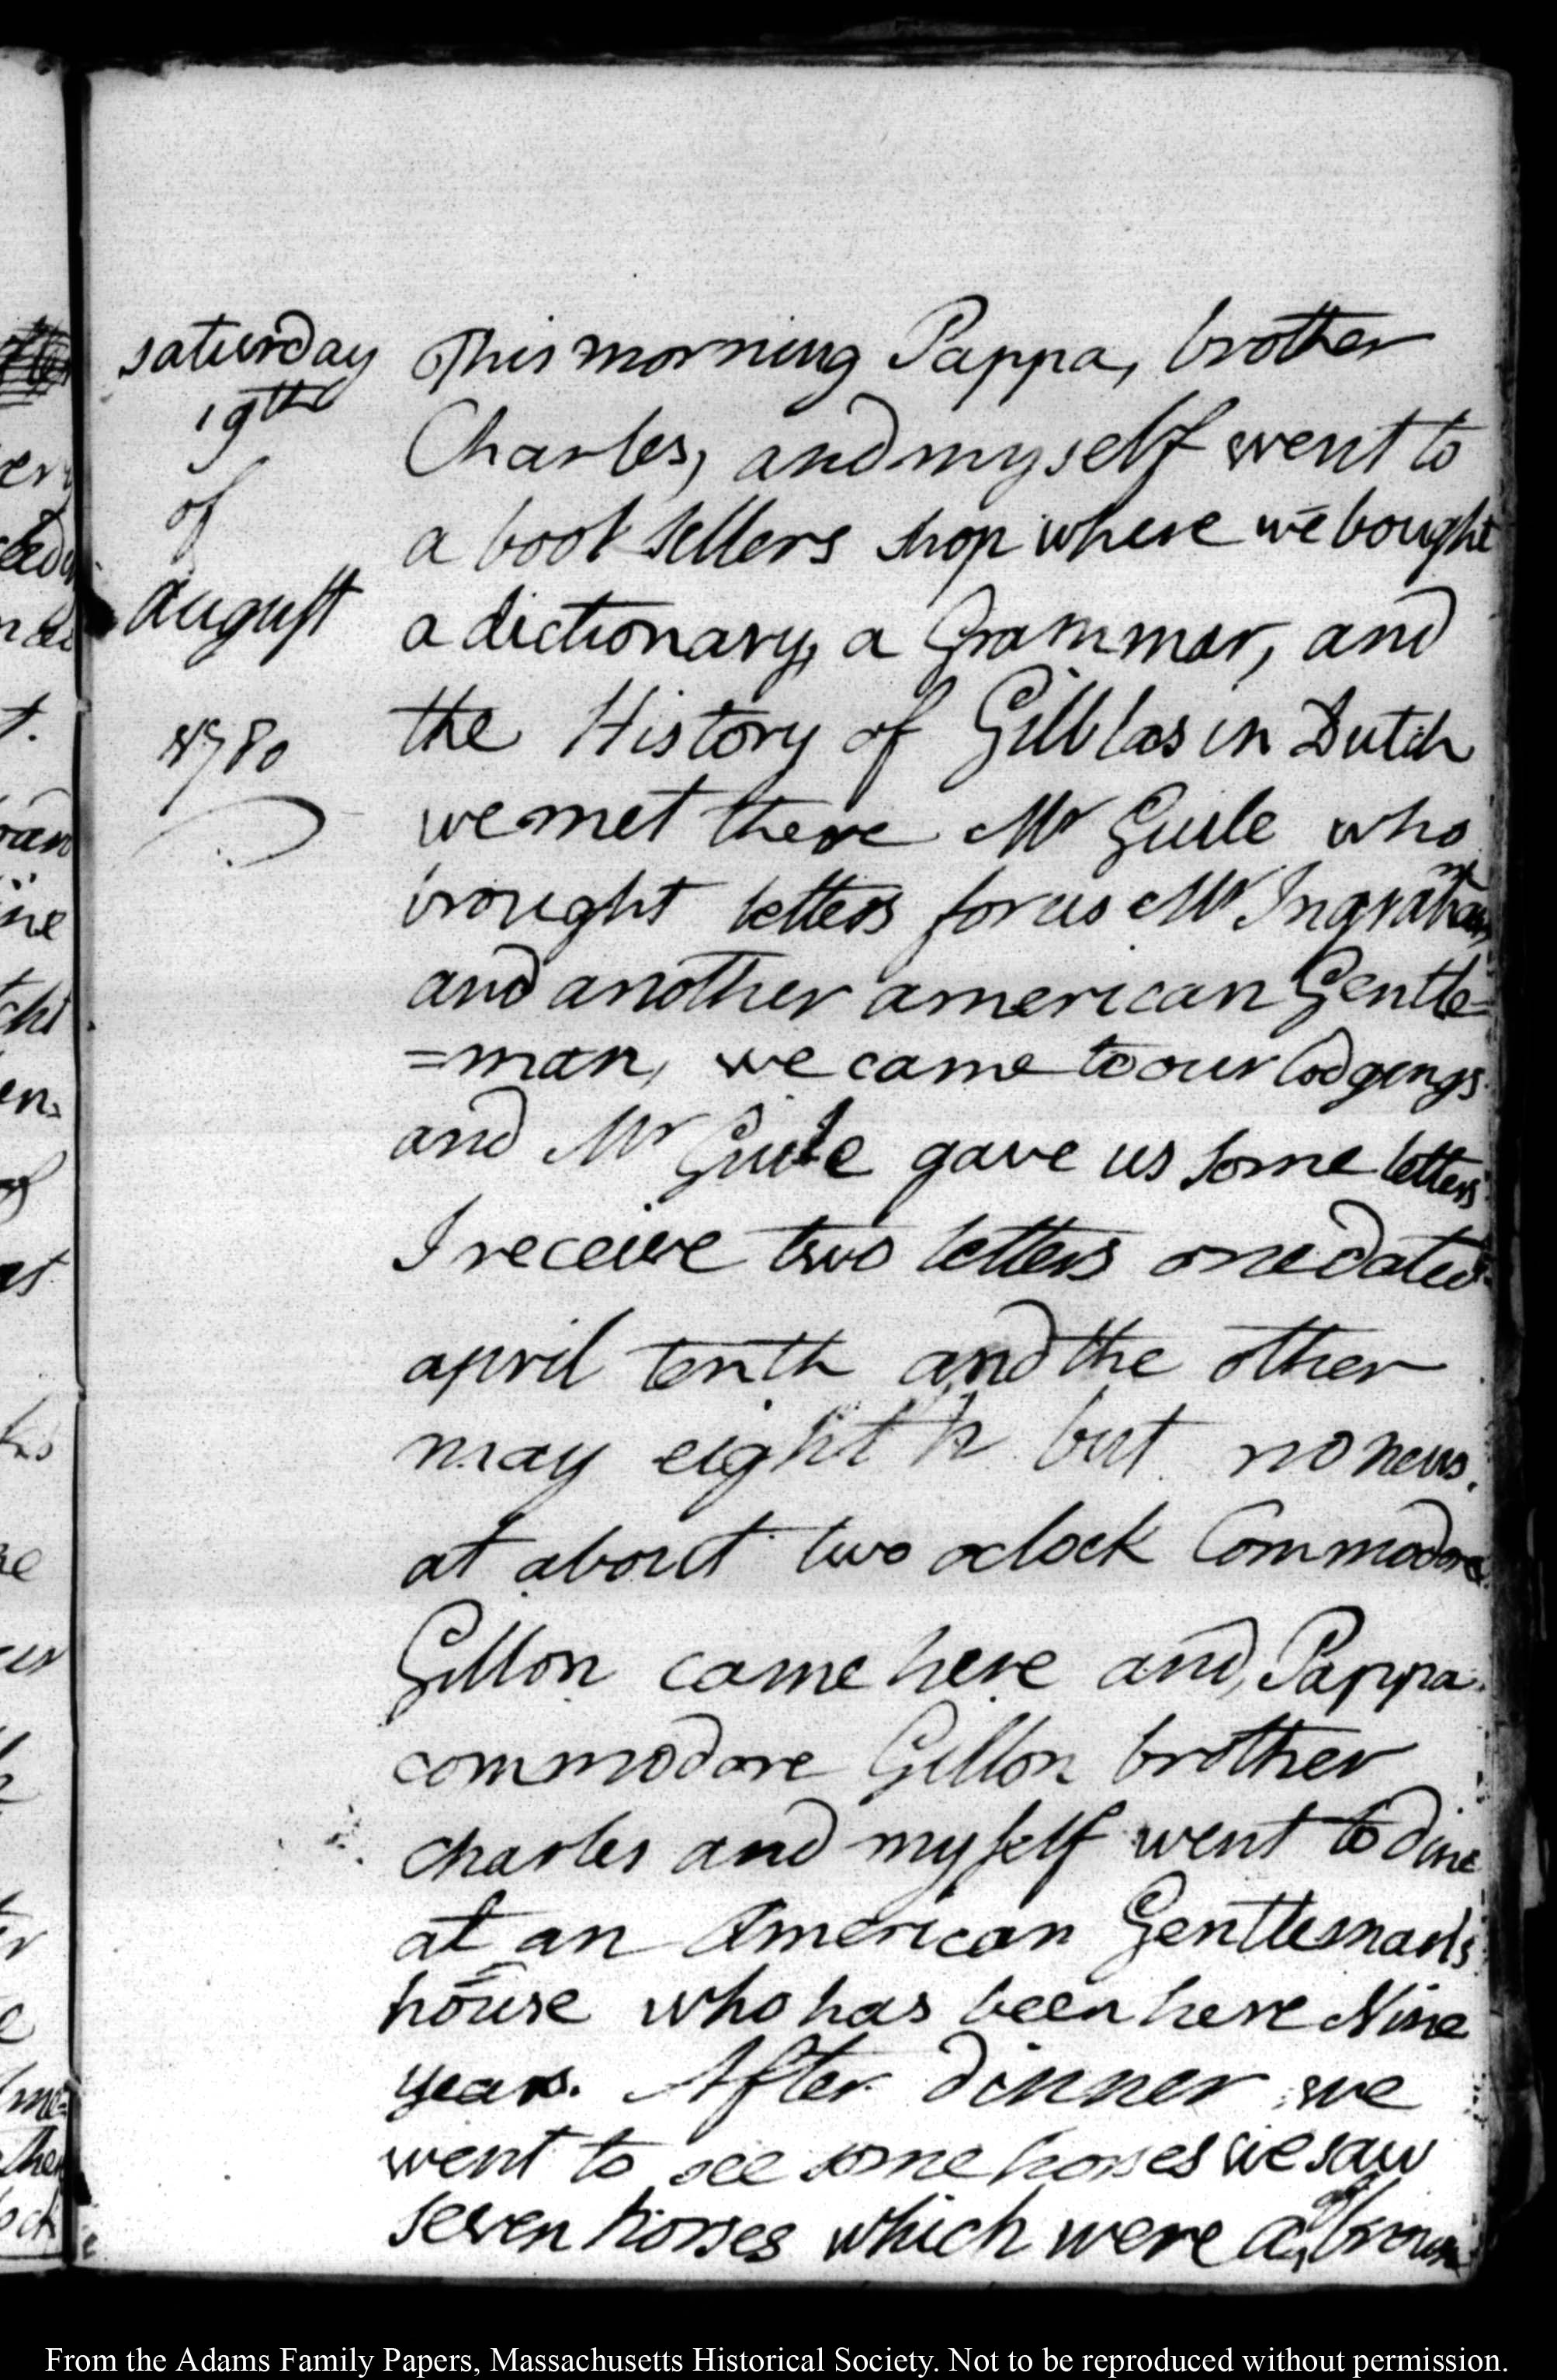 saturday
19th
of
august
1780
This morning Pappa, brother
Charles, and myself went to
a book sellers shop where we bought
a dictionary, a Grammar, and
the History of Gillblas in Dutch
we met there Mr Guile who
brought letters for us Mr Ingraham
and another american Gentle=
=man, we came to our lodgings
and Mr Guile gave us some letters
I receive two letters one dated
april tenth and the other
may eighth but no news.
at about two oclock Commodore
Gillon came here and, Pappa
commodore Gillon brother
charles and myself went to dine
at an American Gentleman's
house who has been here Nine
years. After dinner we
went to see some horses we saw
seven horses which were a brown
From the Adams Family Papers, Massachusetts Historical Society. Not to be reproduced without permission.